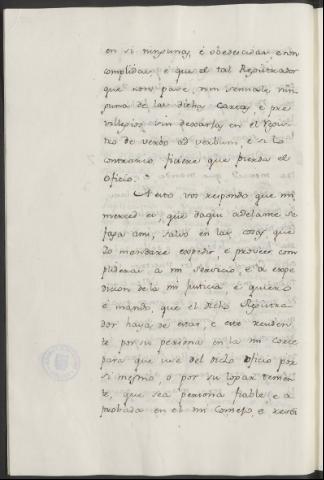 en si ningunas, é obedecidas, e non
complidas, é que el tal Registrador
que non pase, nin sennale nin-
guna de las dichas cartas, é pre-
villegios, sin dexarla en el regis-
tro de verbo ad verbum, é si lo
contrario fiziere que pierda el
oficio.
A esto vos respondo que mi
merced es, que daqui adelante se
faga ansi, salvo en las cosas que
Yo mandare expedir, é proveer con
plideras a mi servicio, e a expe
dicion de la mi justicia é quiero
é mando, que el dicho Registra
dor haya de estar, e este residen
te por su persona en la mi corte
para que use del dicho oficio por
si mismo, o por su logar tenien
te, que sea persona fiable, e a
probada en el mi Consejo, e resci